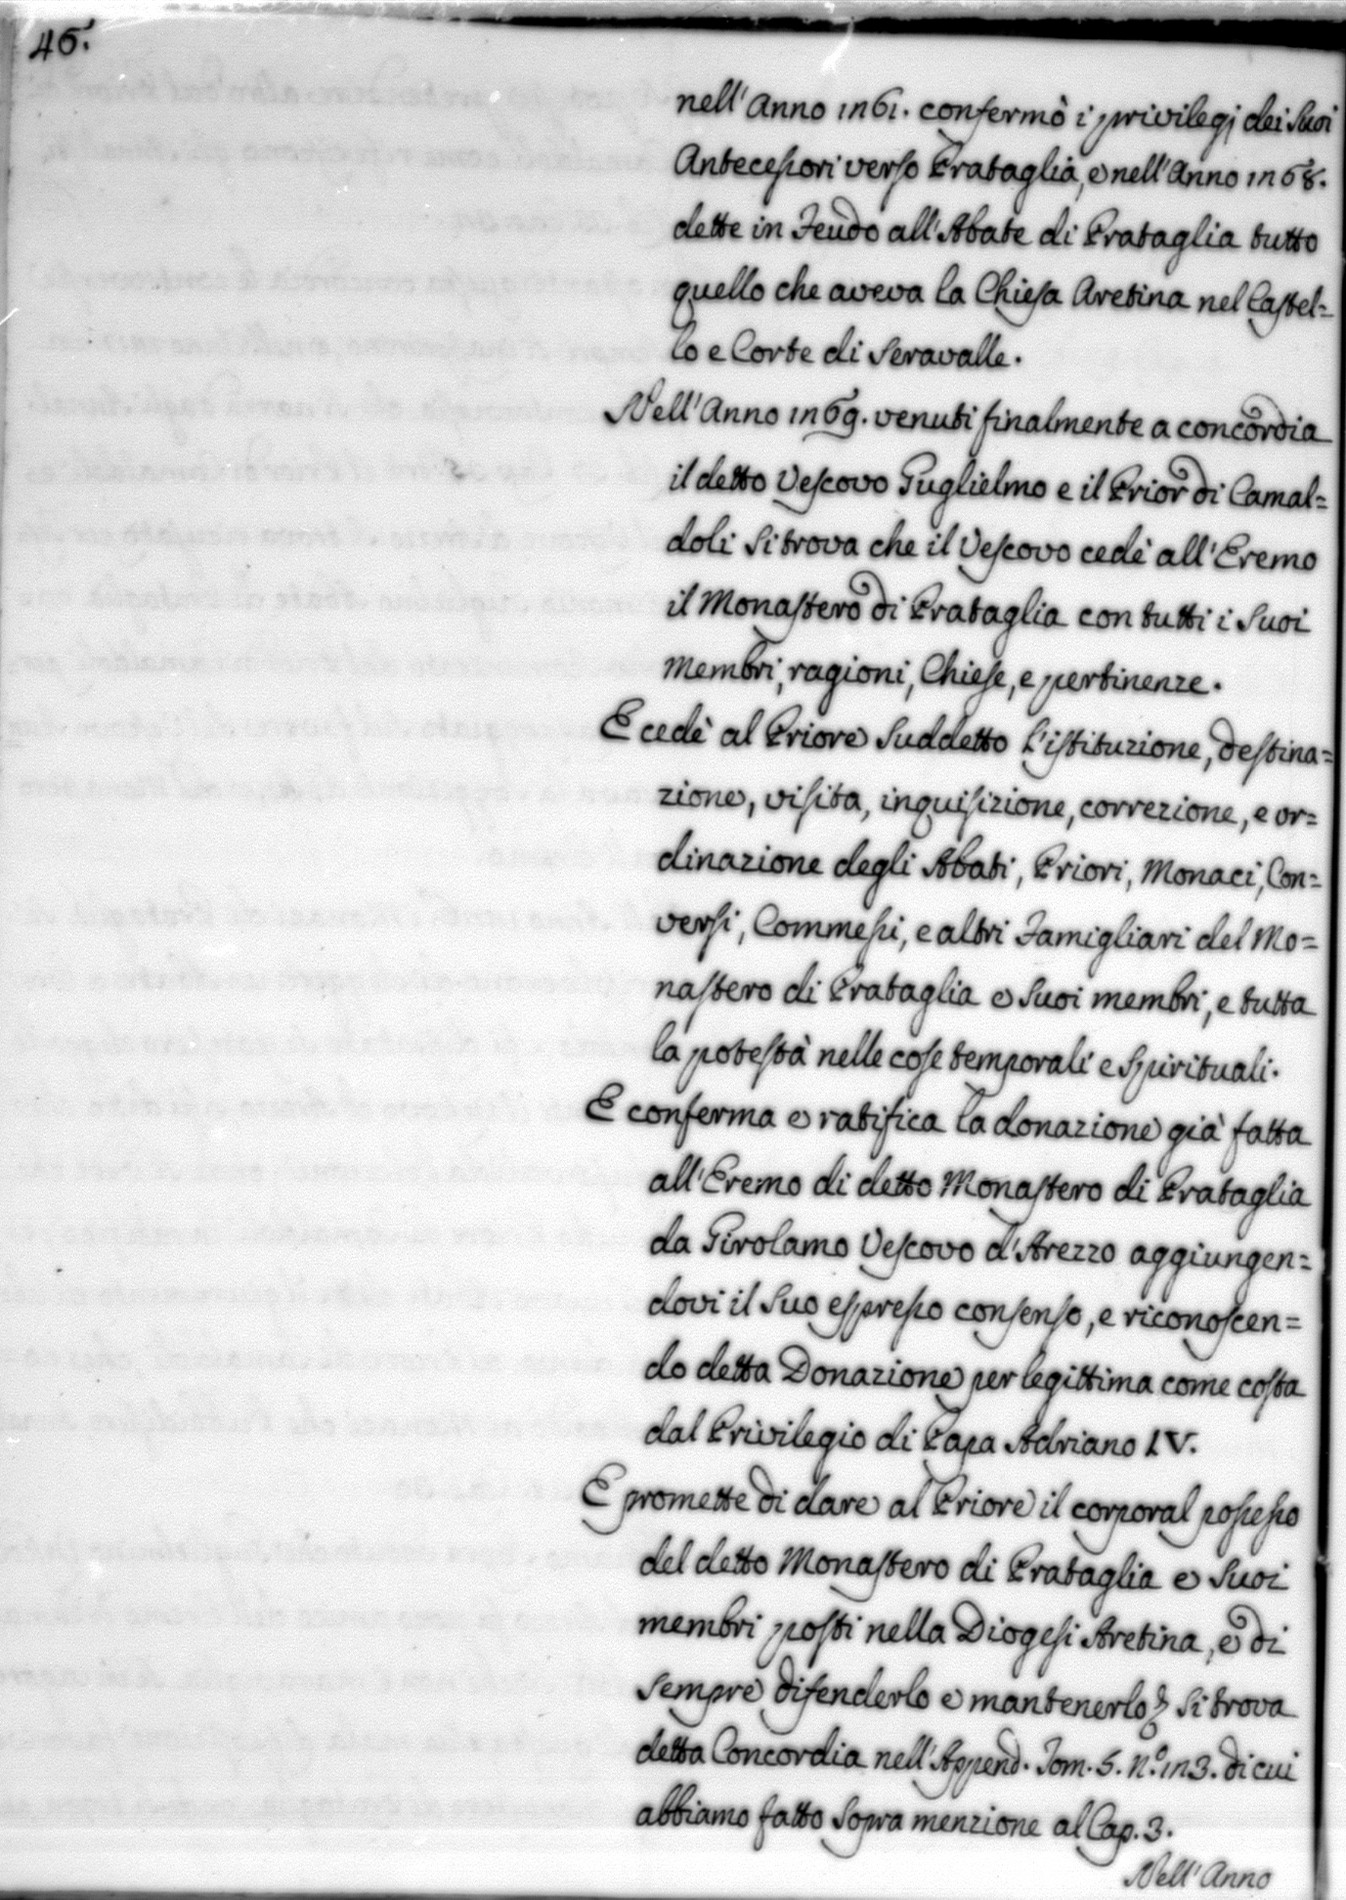 46.
nell'Anno 1261. confermò i privilegj dei Suoi
Antecessori verso Prataglia, e nell'Anno 1268.
dette in Feudo all'Abate di Prataglia tutto
quello che aveva la Chiesa Aretina nel Castel=
lo e Corte di Seravalle.
Nell'Anno 1269. venuti finalmente a concordia
il detto Vescovo Guglielmo e il Prior di Camal=
doli si trova che il Vescovo cedè all'Eremo
il Monastero di Prataglia con tutti i Suoi
Membri, ragioni, Chiese, e pertinenze.
E cedè al Priore Suddetto l'istituzione, destina=
zione, visita, inquisizione, correzione, e or=
dinazione degli Abati, Priori, Monaci, Con=
versi, Commessi, e altri Famigliari del Mo=
nastero di Prataglia e Suoi membri, e tutta
la potestà nelle cose temporali e Spirituali.
E conferma e ratifica la donazione già fatta
all'Eremo di detto Monastero di Prataglia
da Girolamo Vescovo d'Arezzo aggiungen=
dovi il Suo espresso consenso, e riconoscen=
do detta Donazione per legittima come costa
dal Privilegio di Papa Adriano IV.
E promette di dare al Priore il corporal possesso
del detto Monastero di Prataglia e Suoi
membri posti nella Diogesi Aretina, e di
sempre difenderlo e mantenerlo; si trova
detta Concordia nell'Append. Tom. 5. N.º 123. di cui
abbiamo fatto Sopra menzione al Cap. 3.
Nell'Anno